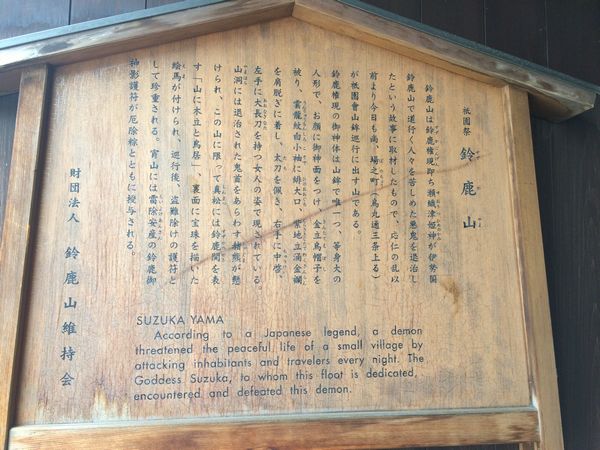 祇園祭 鈴鹿山
鈴鹿山は鈴鹿権現即ち瀬織津姫神が伊勢国
鈴鹿山で道行く人々を苦しめた悪鬼を退治し
たという故事に取材したもので、応仁の乱以
前より今日も尚、場之町(烏丸通三条上る)
が祇園會山鉾巡行に出す山である。
鈴鹿権現の御神体は山鉾で唯一つ、等身大の
人形で、お顔に御神面をつけ、金立烏帽子を
被り、雲龍紋白小袖に緋大口、紫地立涌金襴
を肩脱ぎに着し、太刀を佩き、右手に中啓、
左手に大長刀を持つ女人の姿で現されている。
山洞には退治された鬼首をあらわす赭熊が懸
けられ、この山に限って真松には鈴鹿関を表
す「山に木立と鳥居」、裏面に宝珠を描いた
絵馬が付けられ、巡行後、盗難除けの護符と
して珍重される。宵山には雷除安産の鈴鹿御
神影護符が厄除粽とともに授与される。
財団法人 鈴鹿山維持会
SUZUKA YAMA
According to a Japanese legend, a demon
threatened the peaceful life of a small village by
attacking inhabitants and travelers every night. The
Goddess Suzuka, to whom this float is dedicated,
encountered and defeated this demon.